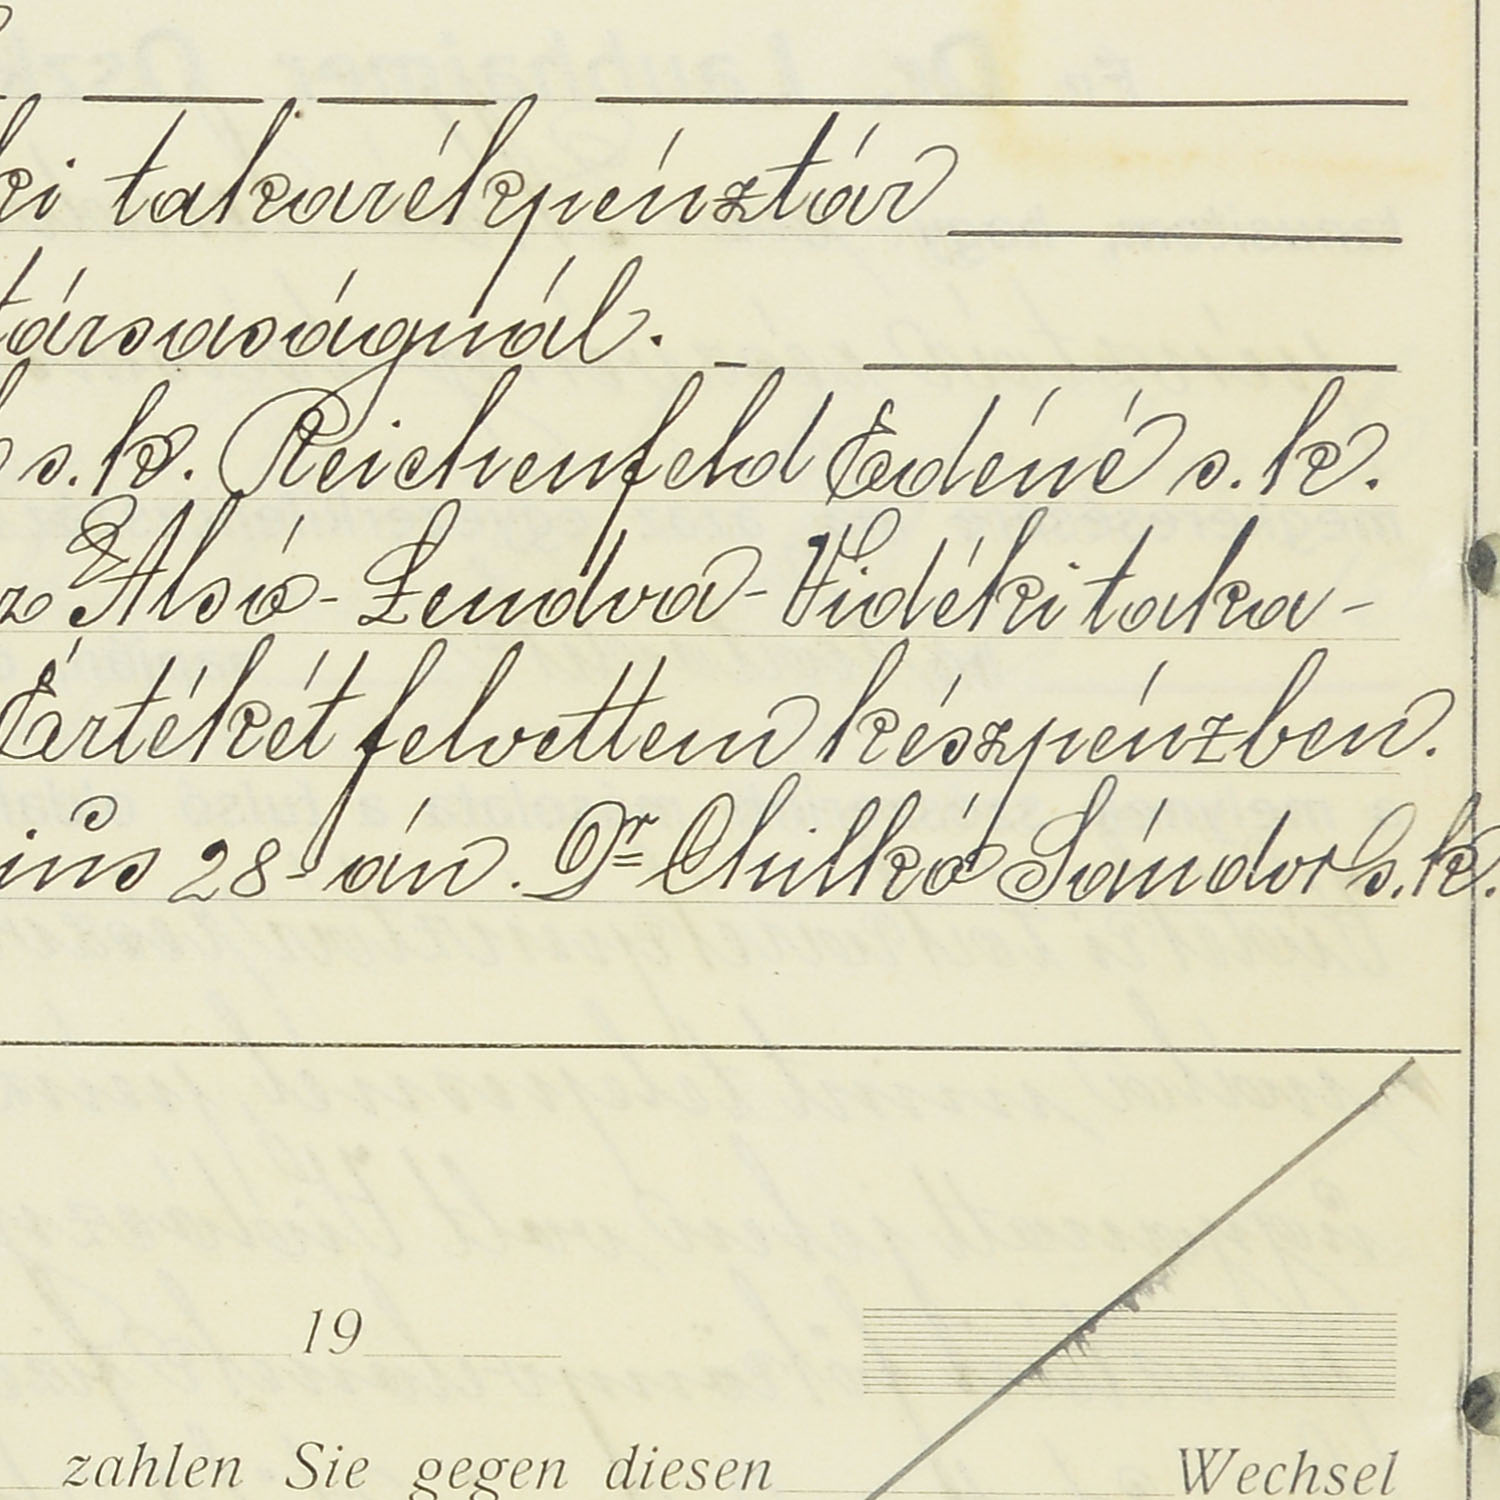 ki takarékpénztár
társaságnál.
s. k. Reichenfeld Edéné s. k.
Alsó-Lendva-Vidéki taka-
Értékét felvettem készpénzben.
28-án. Dr Chilkó Sándor s. k.
19
zahlen Sie gegen diesen Wechsel